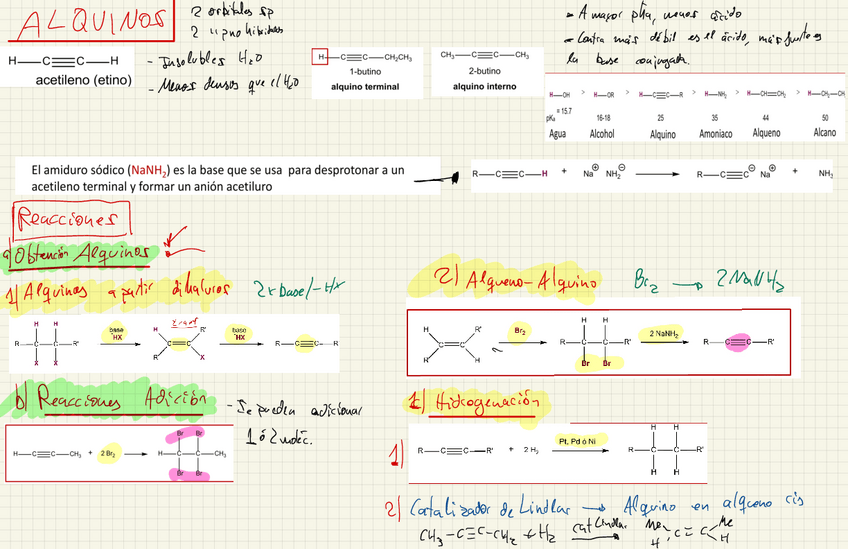 ALQUINOS
2 orbitales sp
2 " p no hibridados
- Insolubles H2O
- Menos densos que el H2O
H—C≡C—H
acetileno (etino)
H—C≡C—CH2CH3
1-butino
alquino terminal
CH3—C≡C—CH3
2-butino
alquino interno
- A mayor pKa, menos ácido
- Contra más débil es el ácido, más fuerte es
la base conjugada.
H—OH > H—OR > H—C≡C—R > H—NH2 > H—CH=CH2 > H—CH2—CH3
pKa = 15.7 16-18 25 35 44 50
Agua Alcohol Alquino Amoniaco Alqueno Alcano
El amiduro sódico (NaNH2) es la base que se usa para desprotonar a un
acetileno terminal y formar un anión acetiluro
R—C≡C—H + Na⊕ NH2⊖ → R—C≡C⊖ Na⊕ + NH3
Reacciones
a) Obtención Alquinos
1) Alquinos a partir dihaluros 2x base/-HX
H H
R—C—C—R'
X X
base
HX
H R'
C=C
R X
base
HX
R—C≡C—R'
2) Alqueno-Alquino Br2 → 2 NaNH2
H R'
C=C
R H
Br2
H H
R—C—C—R'
Br Br
2 NaNH2
R—C≡C—R'
b) Reacciones Adición
- Se pueden adicionar
1 ó 2 moléc.
H—C≡C—CH3 + 2 Br2 →
Br Br
H—C—C—CH3
Br Br
1) Hidrogenación
1)
R—C≡C—R' + 2 H2
Pt, Pd ó Ni
H H
R—C—C—R'
H H
2) Catalizador de Lindlar → Alquino en alqueno cis
CH3-C≡C-CH3 + H2 cat Lindlar Me C=C Me
H H